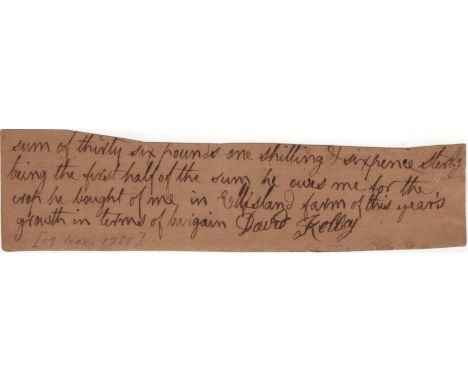 sum of thirty six pounds one shilling & sixpence sterlg
being the first half of the sum he owes me for the
crop he bought of me in Ellisland farm of this year's
growth in terms of bargain David Kelby
[19 Nov. 1788]